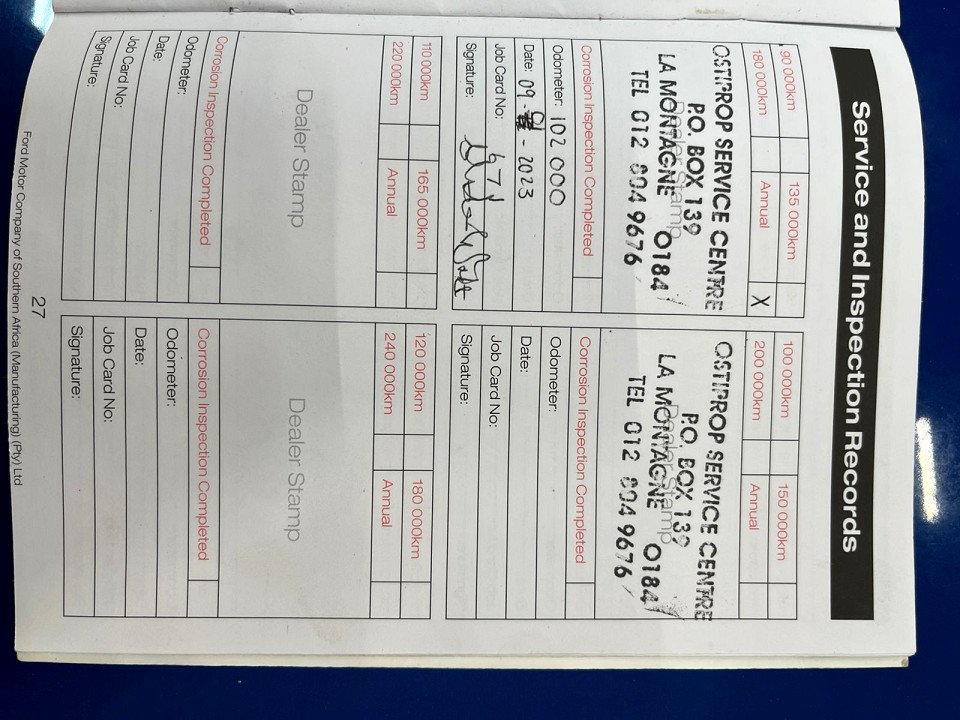 Service and Inspection Records
90 000km 135 000km
180 000km Annual X
OSTIPROP SERVICE CENTRE
P.O. BOX 139
Dealer Stamp
LA MONTAGNE 0184
TEL 012 804 9676
Corrosion Inspection Completed
Odometer: 102 000
Date: 09 - - 2023
Job Card No:
Signature:
100 000km 150 000km
200 000km Annual
OSTIPROP SERVICE CENTRE
P.O. BOX 139
Dealer Stamp
LA MONTAGNE 0184
TEL 012 804 9676
Corrosion Inspection Completed
Odometer:
Date:
Job Card No:
Signature:
110 000km 165 000km
220 000km Annual
Dealer Stamp
Corrosion Inspection Completed
Odometer:
Date:
Job Card No:
Signature:
120 000km 180 000km
240 000km Annual
Dealer Stamp
Corrosion Inspection Completed
Odometer:
Date:
Job Card No:
Signature:
27
Ford Motor Company of Southern Africa (Manufacturing) (Pty) Ltd